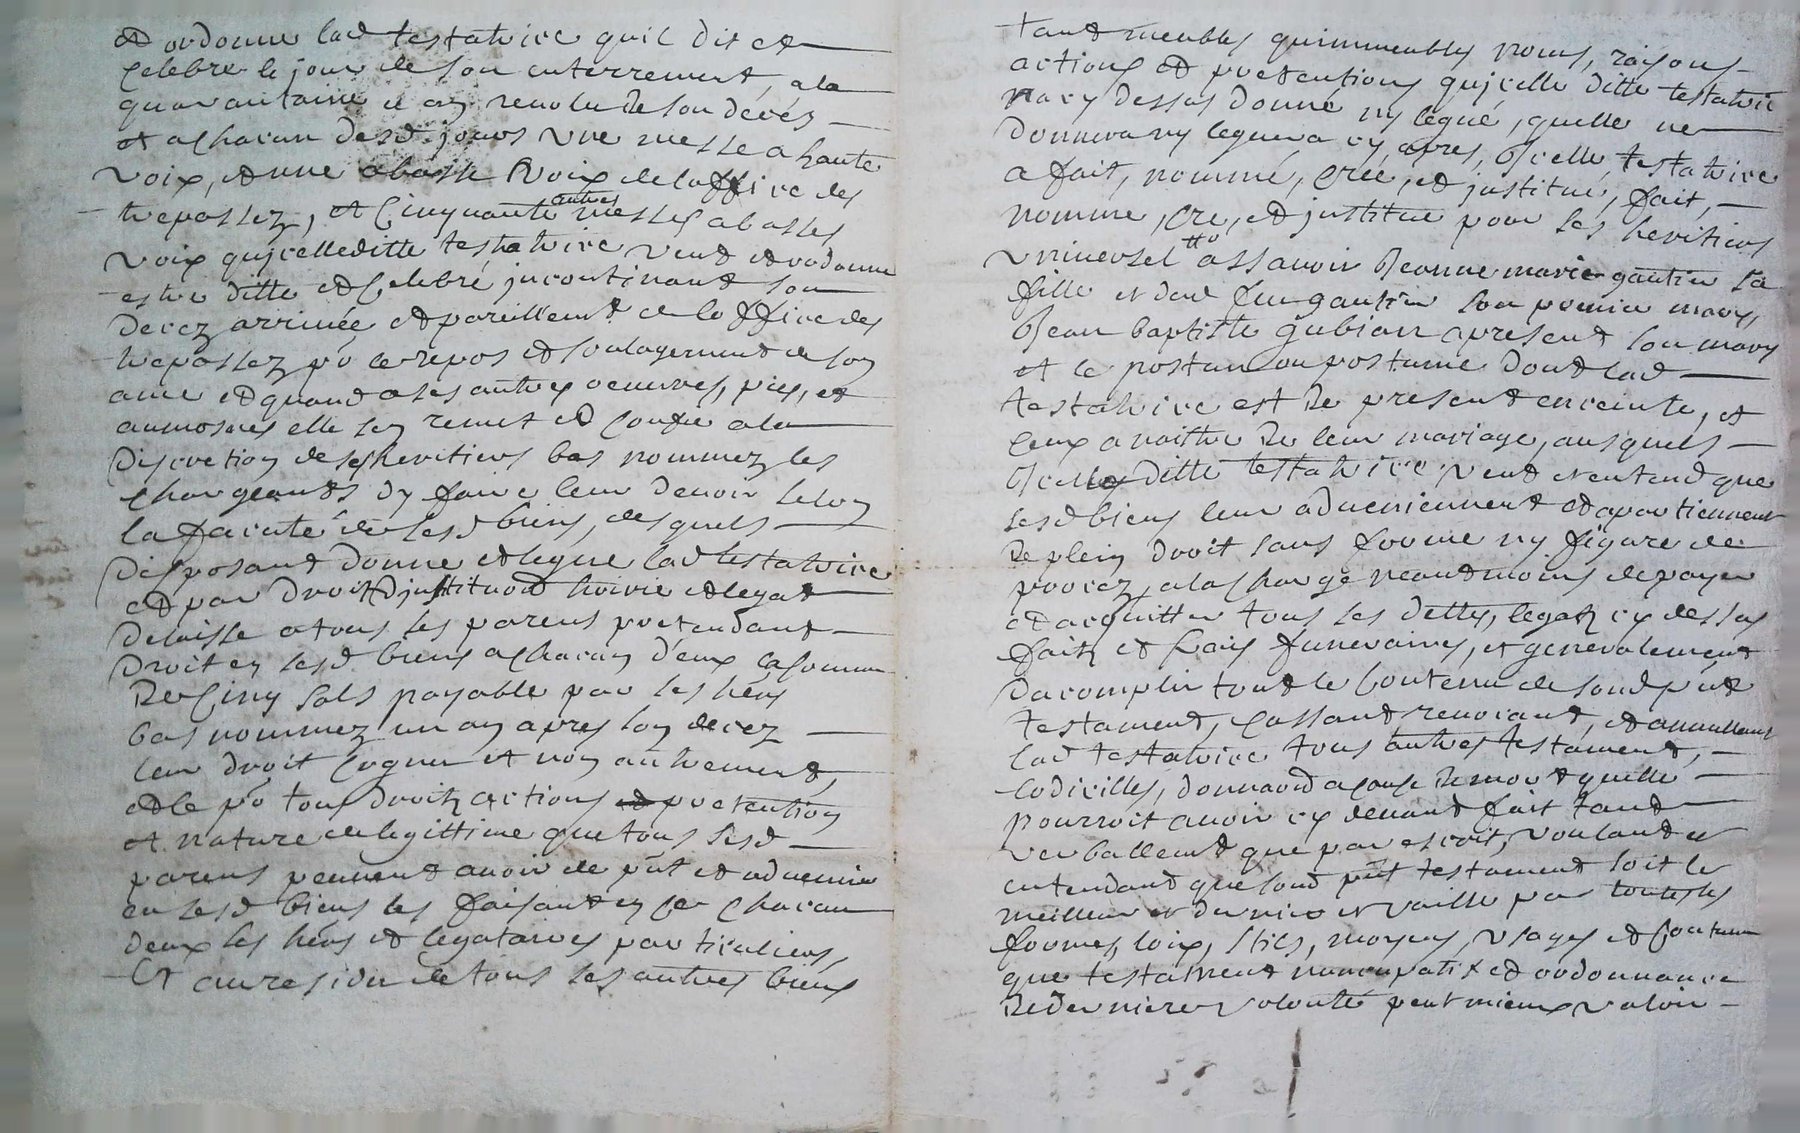 et ordonne lad testatrice quil dit et
celebre le jour de son enterrement, a la
quarantaine et an revolu de son decés
et a chacun desd jours une messe a haute
voix, et une a basse voix de loffice des
trepassez, et cinquante autres messes a basses
voix qujcelleditte testatrice veut et ordonne
estre ditte et celebré jncontinant son
decez arrivée et pareillemt de loffice des
trepassez po le repos et soulagement de son
ame et quand a ses autres oeuvres, pies, et
aumosnes elle sen remet et confie a la
discretion de ses heritiers bas nommez les
chargeants dy faire leur devoir selon
la faculté de sesd biens, desquels
disposant donne et legue lad testatrice
et par droit djnstituon hoirie et legat
delaisse a tous ses parens pretendant
droit en sesd biens a chacun deux la somme
de cinq sols payable par ses hers
bas nommez un an apres son decez
leur droit cognu et non autrement,
et ce po tous droitz actions et pretention
et nature de legittime que tous sesd
parens peuvent avoir de pnt et advenir
en sesd biens les faisant en ce chacun
deux ses hers et legataires particuliers,
Et au residu de tous ses autres biens
tant meubles quimmeubles noms, raisons
actions et pretentions qujcelle ditte testatrice
na cy dessus donné ny legué, quelle ne
donnera ny leguera cy apres, Jcelle testatrice
a fait, nommé, créé, et jnstitué, fait,
nomme, cre, et jnstitue pour ses heritiers
universel assavoir Jeanne marie gautier sa
fille et dud feu gautier son premier mary,
Jean baptiste gubian apresent son mary
et le postume ou postume dont lad
testatrice est de present enceinte, et
ceux a naitre de leur mariage, ausquels
Jcelle ditte testatrice veut et entend que
sesd biens leur adveniennent et apartiennent
de plein droit sans forme ny figure de
procez, a la charge neantmoins de payer
et acquitter tous ses dettes, legatz cy dessus
faitz et frais funeraires, et generalement
dacomplir tout le contenu de sond pnt
testament, cassant revocant, et annullant
lad testatrice tous autres testament,
codicilles, donnaond a cause de mort quelle
pourroit avoir cy devant fait tant
verballemt que par escrit, voulant et
entendant que sond pnt testament soit le
meilleur et dernier et vaille par toutes les
formes, loix, stils, moyens, usages et coutume
que testament nuncupatif et ordonnance
de derniere volonté peut mieux valoir